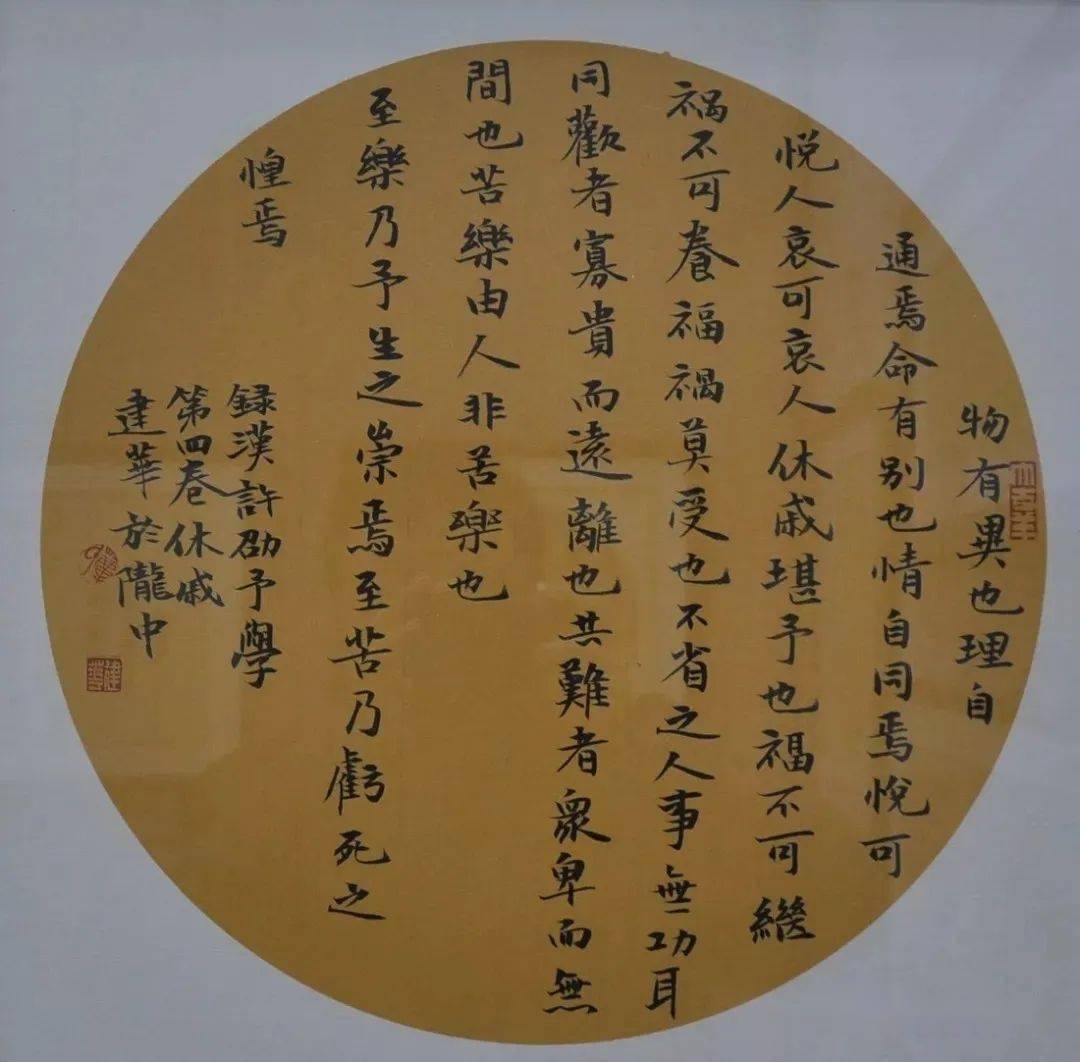 物有異也理自
通焉命有别也情自同焉悦可
悦人哀可哀人休戚堪予也福不可繼
禍不可養福禍莫受也不省之人事無一功耳
同歡者寡貴而遠離也共難者衆卑而無
間也苦樂由人非苦樂也
至樂乃予生之崇焉至苦乃虧死之
惶焉
録漢許劭予學
第四卷休戚
建華於隴中
建華